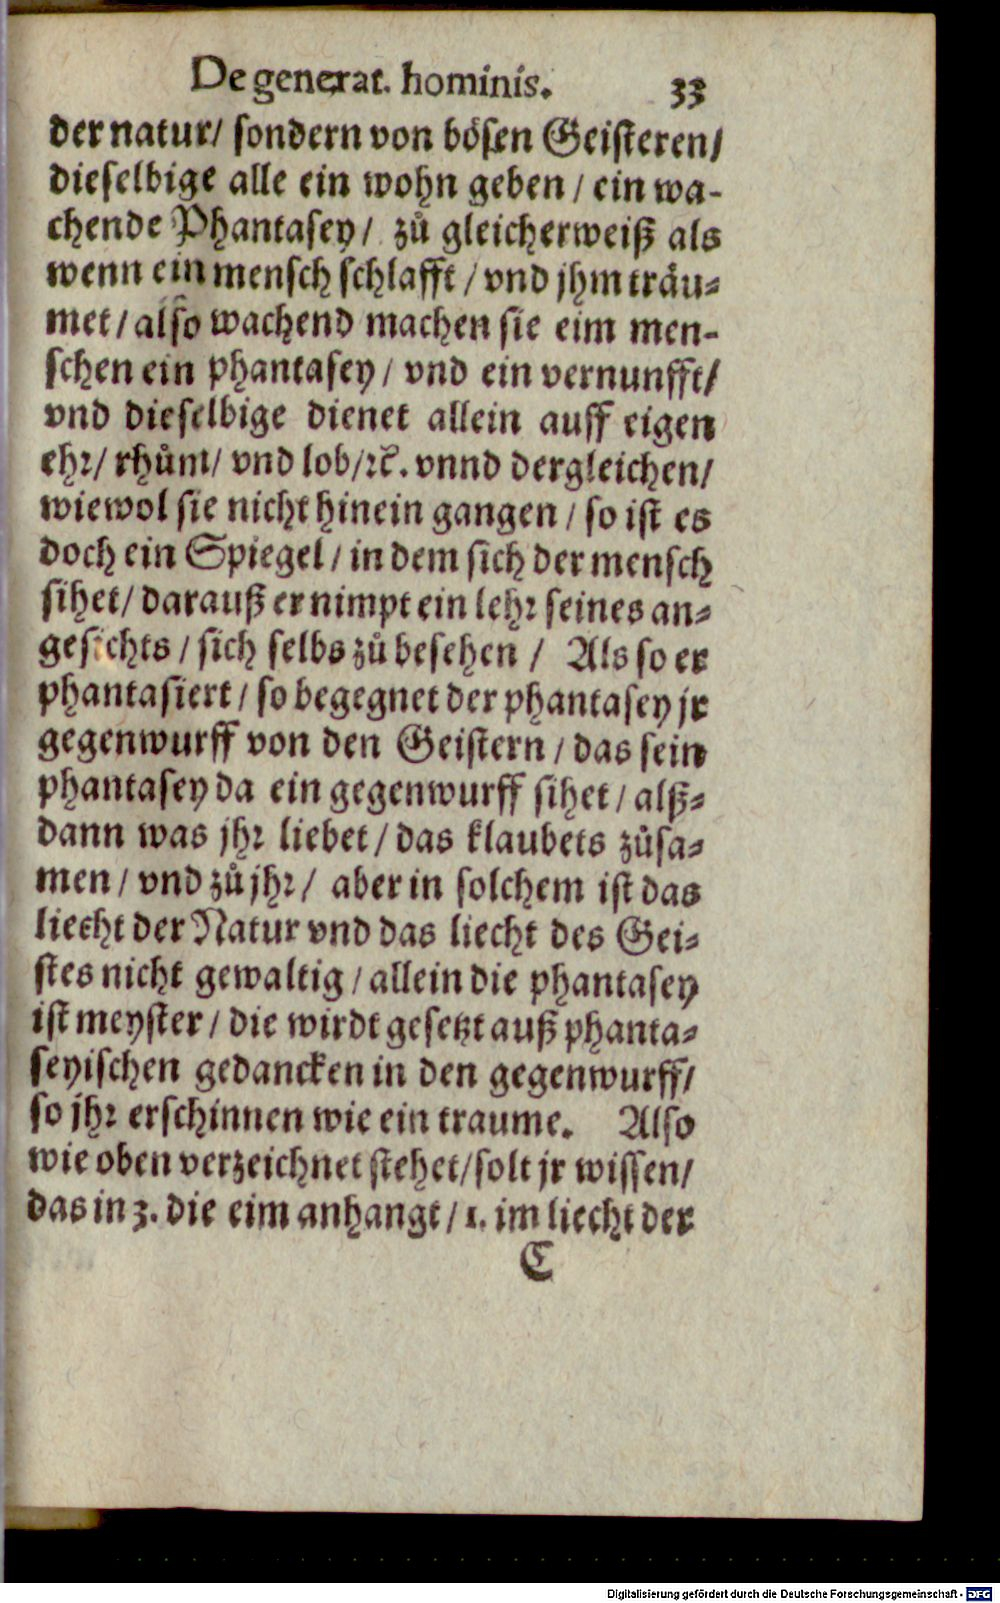 De generat. hominis. 33
der natur/ sondern von bösen Geisteren/
dieselbige alle ein wohn geben / ein wa-
chende Phantasey / zů gleicherweiß als
wenn ein mensch schlafft / vnd jhm träu-
met / also wachend machen sie eim men-
schen ein phantasey / vnd ein vernunfft/
vnd dieselbige dienet allein auff eigen
ehr/ rhům/ vnd lob/ ꝛc. vnnd dergleichen/
wiewol sie nicht hinein gangen / so ist es
doch ein Spiegel / in dem sich der mensch
sihet/ darauß er nimpt ein lehr seines an-
gesichts / sich selbs zů besehen / Als so er
phantasiert / so begegnet der phantasey jr
gegenwurff von den Geistern / das sein
phantasey da ein gegenwurff sihet / alß-
dann was jhr liebet / das klaubets zůsa-
men / vnd zů jhr / aber in solchem ist das
liecht der Natur vnd das liecht des Gei-
stes nicht gewaltig / allein die phantasey
ist meyster / die wirdt gesetzt auß phanta-
seyischen gedancken in den gegenwurff/
so jhr erschinnen wie ein traume. Also
wie oben verzeichnet stehet/ solt jr wissen/
das in 3. die eim anhangt / 1. im liecht der
C
Digitalisierung gefördert durch die Deutsche Forschungsgemeinschaft - DFG